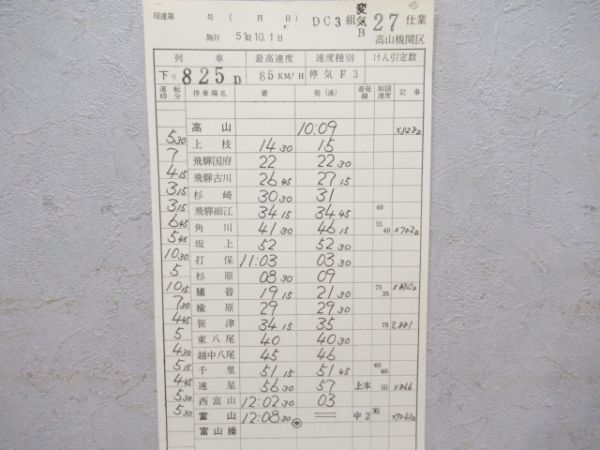 報達第 号( 月 日) DC3組 変気B 27仕業
施行 51年10.1日 高山機関区
列車 最高速度 速度種別 けん引定数
下り 825D 85KM/H 停気F3
運転時分 停車場名 着 発(通) 着発線 制限速度 記事
高山 10:09
530 上枝 1430 15
7 飛騨国府 22 2230
415 飛騨古川 2645 2715
315 杉崎 3030 31
315 飛騨細江 3415 3445 40
645 角川 4130 4615 55 40 ×702D
545 坂上 52 5230
1030 打保 11:03 0330
5 杉原 0830 09
1015 猪谷 1915 2130 75 35
730 楡原 29 2930
445 笹津 3415 35 75
5 東八尾 40 4030
430 越中八尾 45 46
515 千里 5115 5145 60 60
445 速星 5630 57 上本 60 ×866
530 西富山 12:0230 03
530 富山 12:0830 = 中2 35
富山操